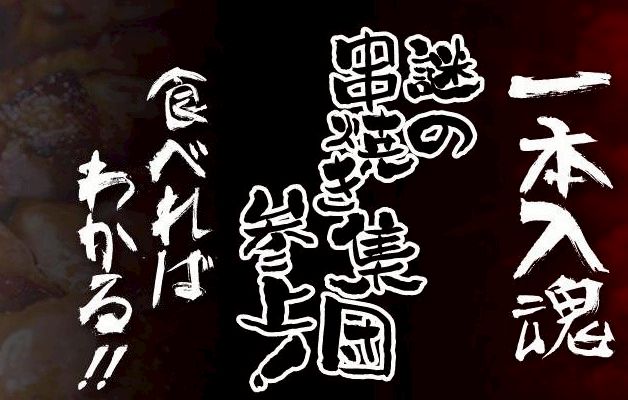 一本入魂
謎の
串焼き集団
参上!
食べれば
わかる!!